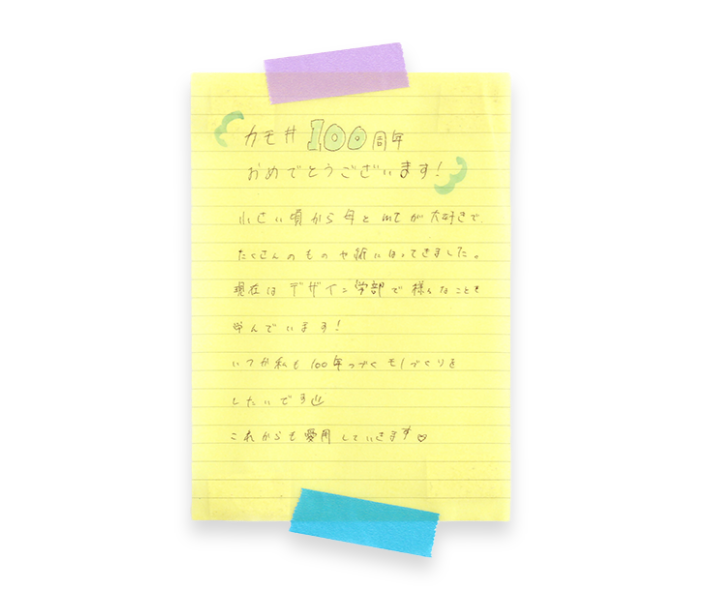 カモ井100周年
おめでとうございます!
小さい頃から母とmtが大好きで、
たくさんのものや紙にはってきました。
現在はデザイン学部で様々なことを
学んでいます!
いつか私も100年つづくモノづくりを
したいです
これからも愛用していきます♡